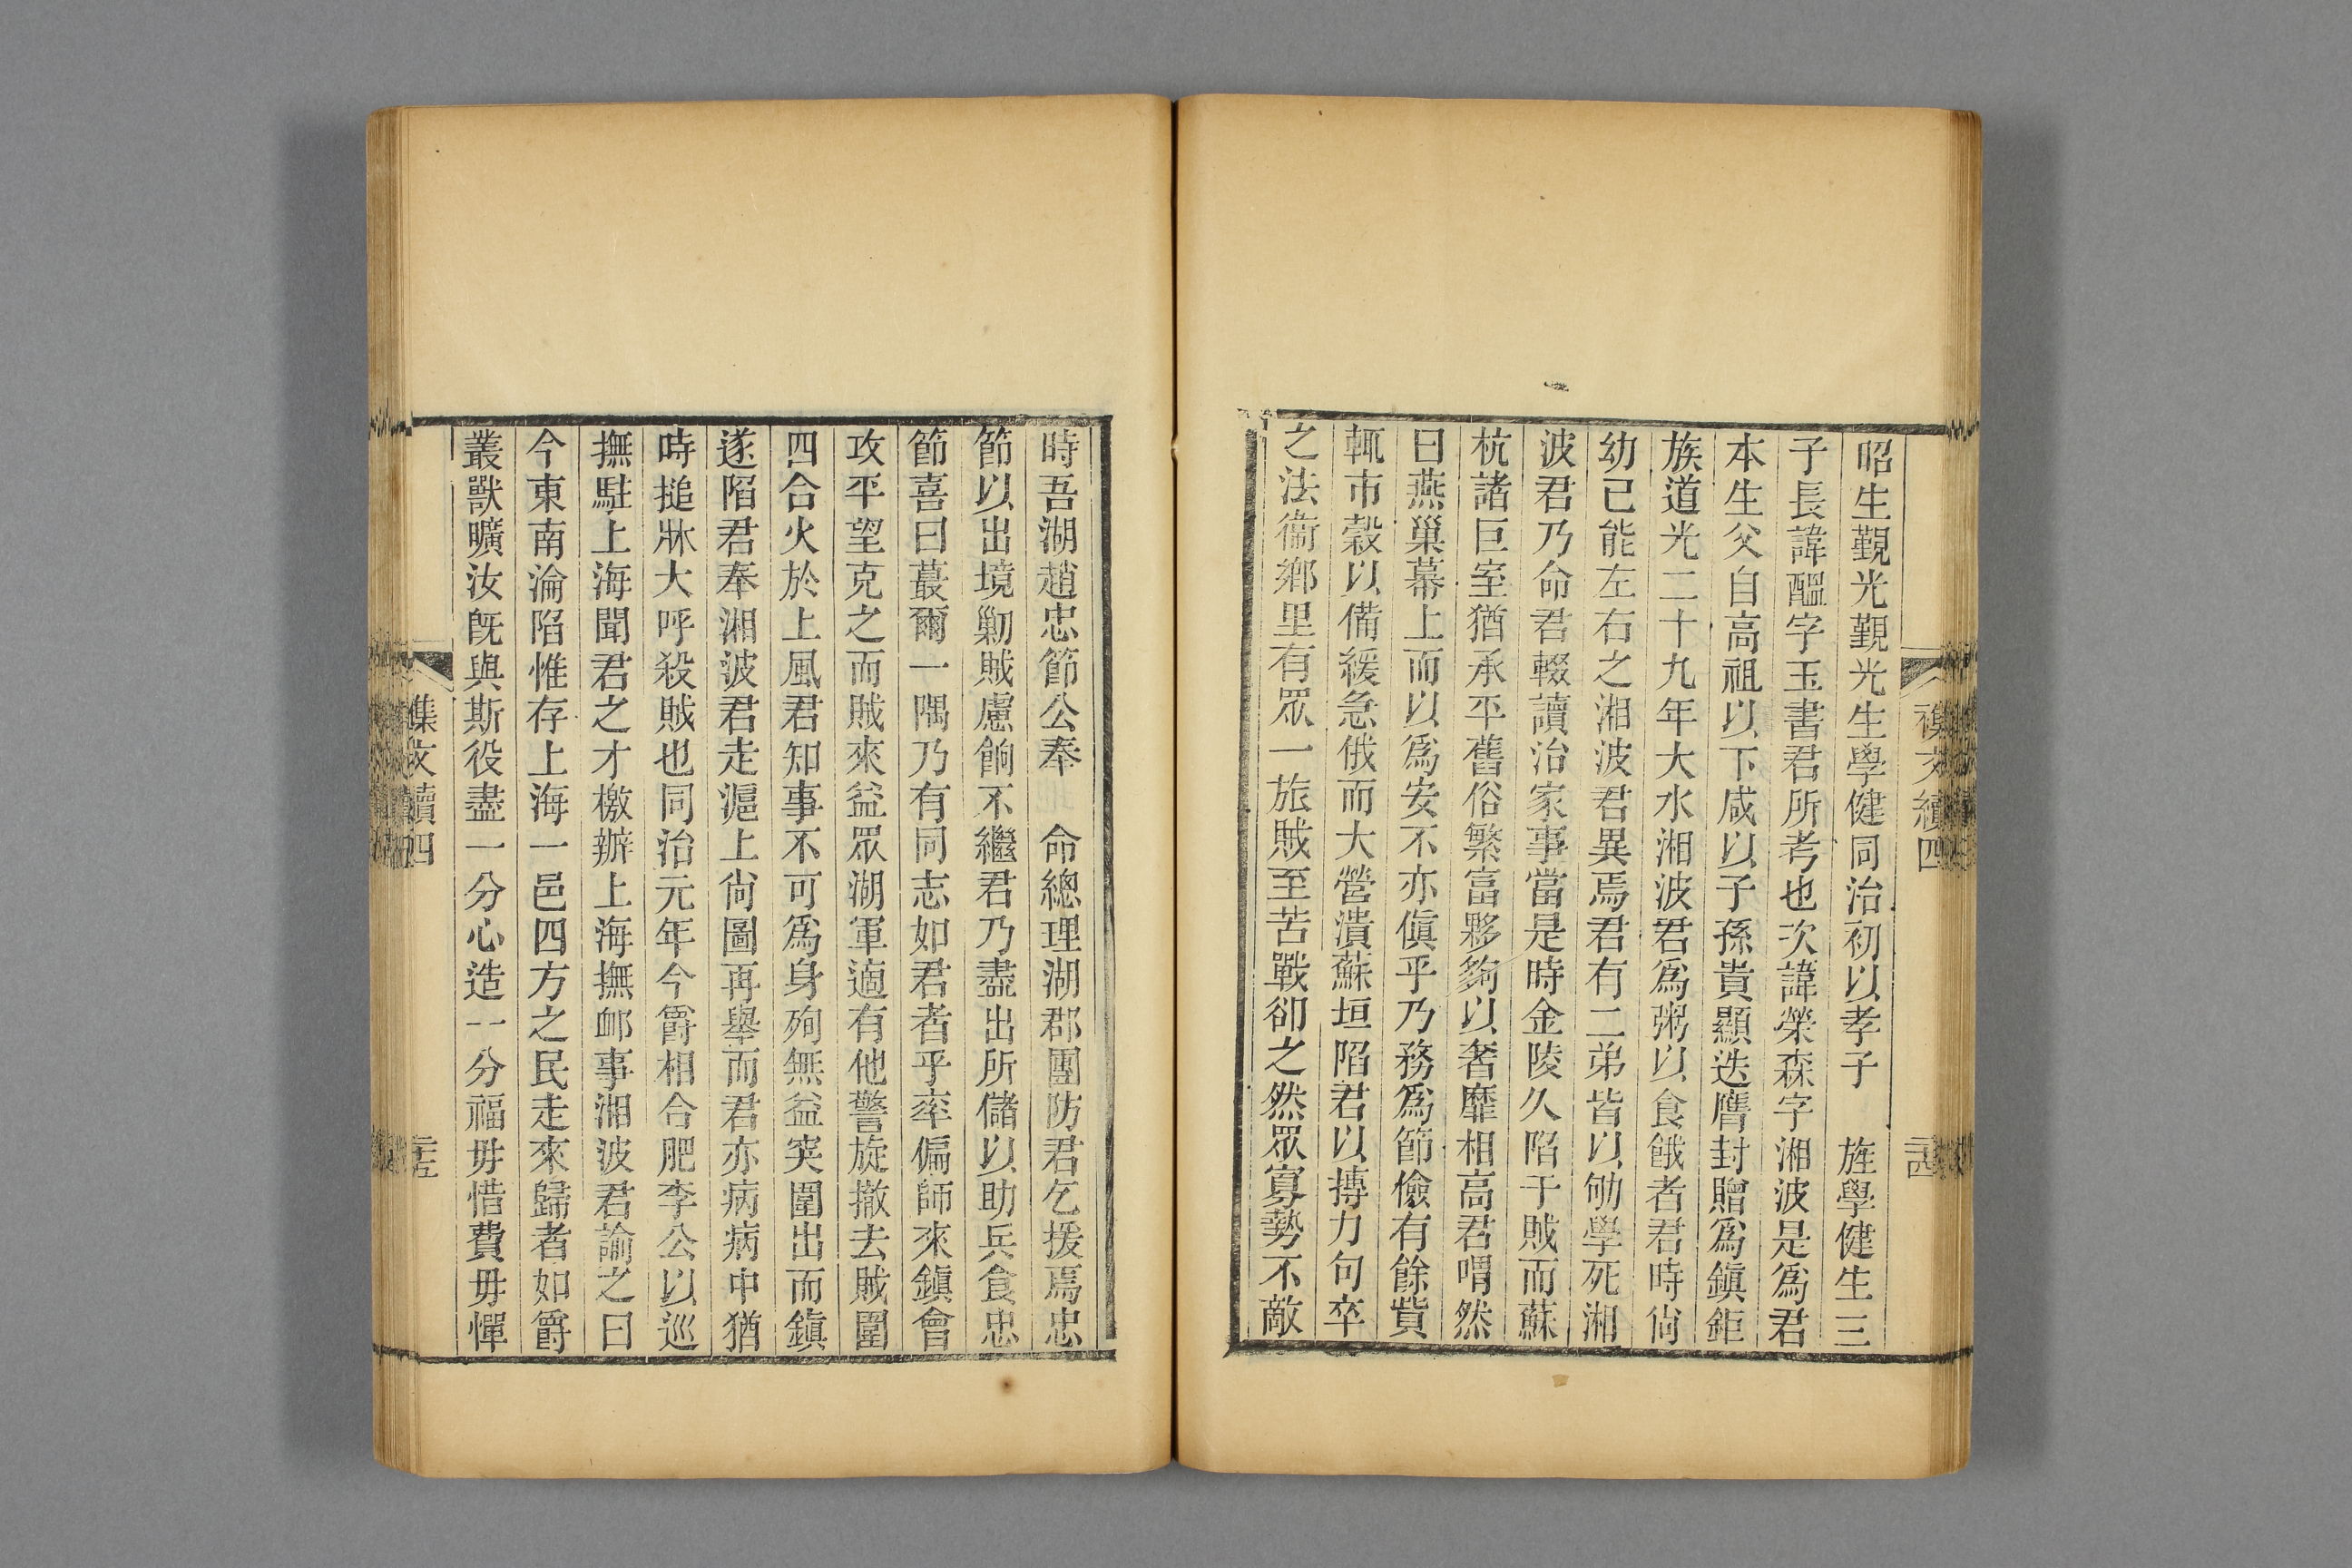 昭生覲光覲光生學健同治初以孝子　旌學健生三
子長諱醖字玉書君所考也次諱榮森字湘波是爲君
本生父自高祖以下咸以子孫貴顯迭膺封贈爲鎭鉅
族道光二十九年大水湘波君爲粥以食餓者君時尙
幼已能左右之湘波君異焉君有二弟皆以劬學死湘
波君乃命君輟讀治家事當是時金陵久陷于賊而蘇
杭諸巨室猶承平舊俗繁富夥夠以奢靡相高君喟然
曰燕巢幕上而以爲安不亦傎乎乃務爲節儉有餘貲
輒市穀以備緩急俄而大營潰蘇垣陷君以摶力句卒
之法衞鄕里有眾一旅賊至苦戰卻之然眾寡勢不敵
襍文續四
二十四
時吾湖趙忠節公奉　命總理湖郡團防君乞援焉忠
節以出境勦賊慮餉不繼君乃盡出所儲以助兵食忠
節喜曰蕞爾一隅乃有同志如君者乎率偏師來鎭會
攻平望克之而賊來益眾湖軍適有他警旋撤去賊圍
四合火於上風君知事不可爲身殉無益突圍出而鎭
遂陷君奉湘波君走滬上尙圖再舉而君亦病病中猶
時搥牀大呼殺賊也同治元年今爵相合肥李公以巡
撫駐上海聞君之才檄辦上海撫卹事湘波君諭之曰
今東南淪陷惟存上海一邑四方之民走來歸者如爵
叢獸曠汝旣與斯役盡一分心造一分福毋惜費毋憚
襍文續四
二十五